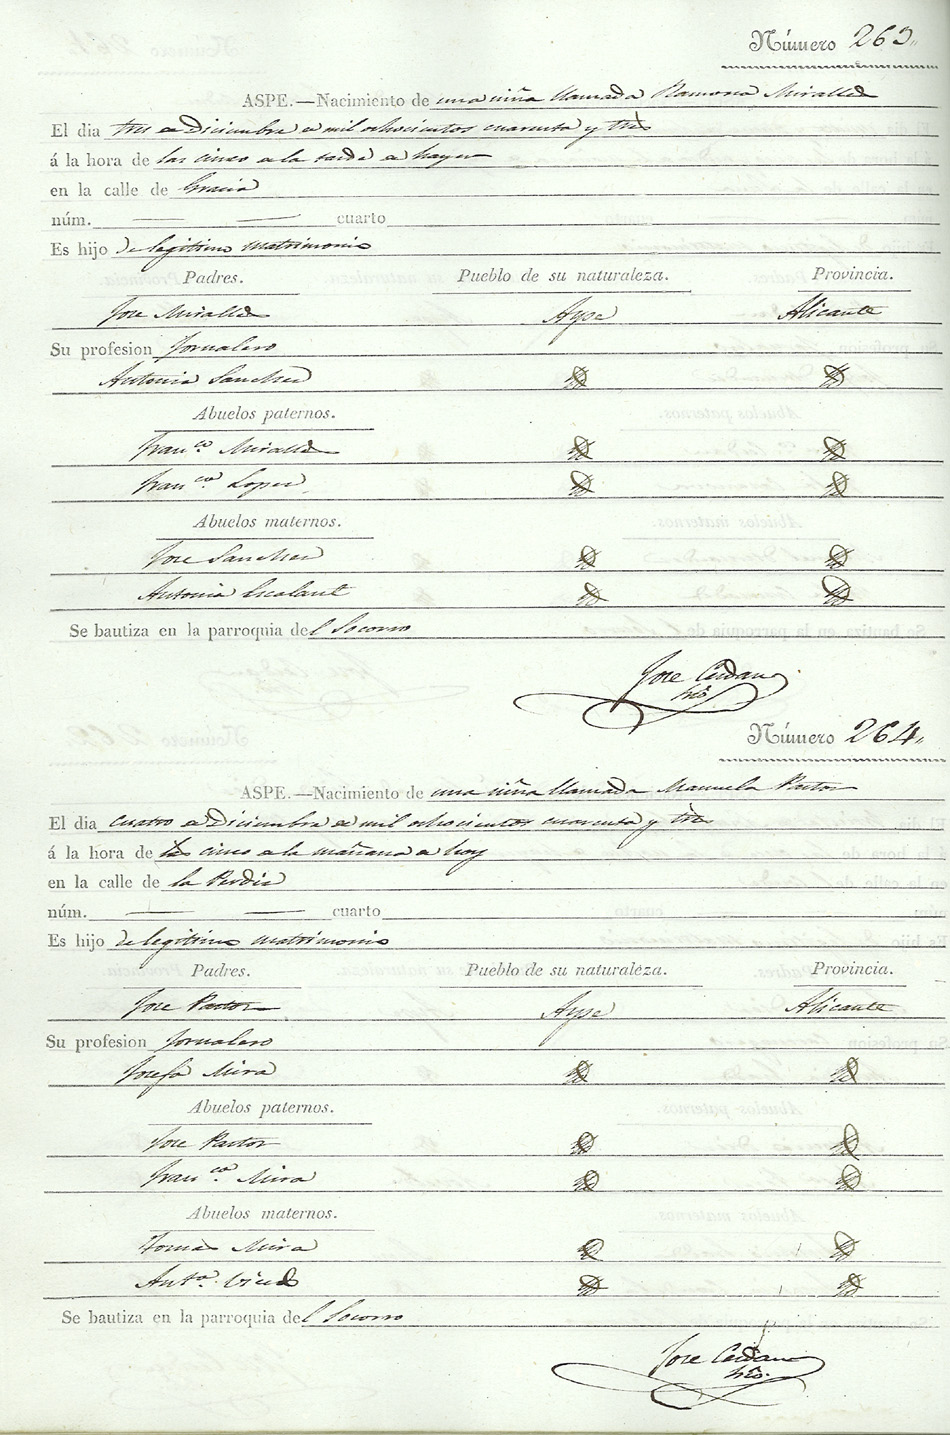 Número 263
ASPE.—Nacimiento de una niña llamada Ramona Miralles
El dia tres de Diciembre de mil ochocientos cuarenta y tres
á la hora de las cinco de la tarde de hayer
en la calle de Gracia
núm. — — cuarto
Es hijo de legitimo matrimonio
Padres. Pueblo de su naturaleza. Provincia.
Jose Miralles Aspe Alicante
Su profesion Jornalero
Antonia Sanchez
Abuelos paternos.
Franco. Miralles
Franca. Lopez
Abuelos maternos.
Jose Sanchez
Antonia Escalant
Se bautiza en la parroquia del Socorro
Jose Cerdan
Número 264
ASPE.—Nacimiento de una niña llamada Manuela Pastor
El dia cuatro de Diciembre de mil ochocientos cuarenta y tres
á la hora de las cinco de la mañana de hoy
en la calle de la Perdiz
núm. — — cuarto
Es hijo de legitimo matrimonio
Padres. Pueblo de su naturaleza. Provincia.
Jose Pastor Aspe Alicante
Su profesion Jornalero
Josefa Mira
Abuelos paternos.
Jose Pastor
Franca. Mira
Abuelos maternos.
Tomas Mira
Anta.
Se bautiza en la parroquia del Socorro
Jose Cerdan